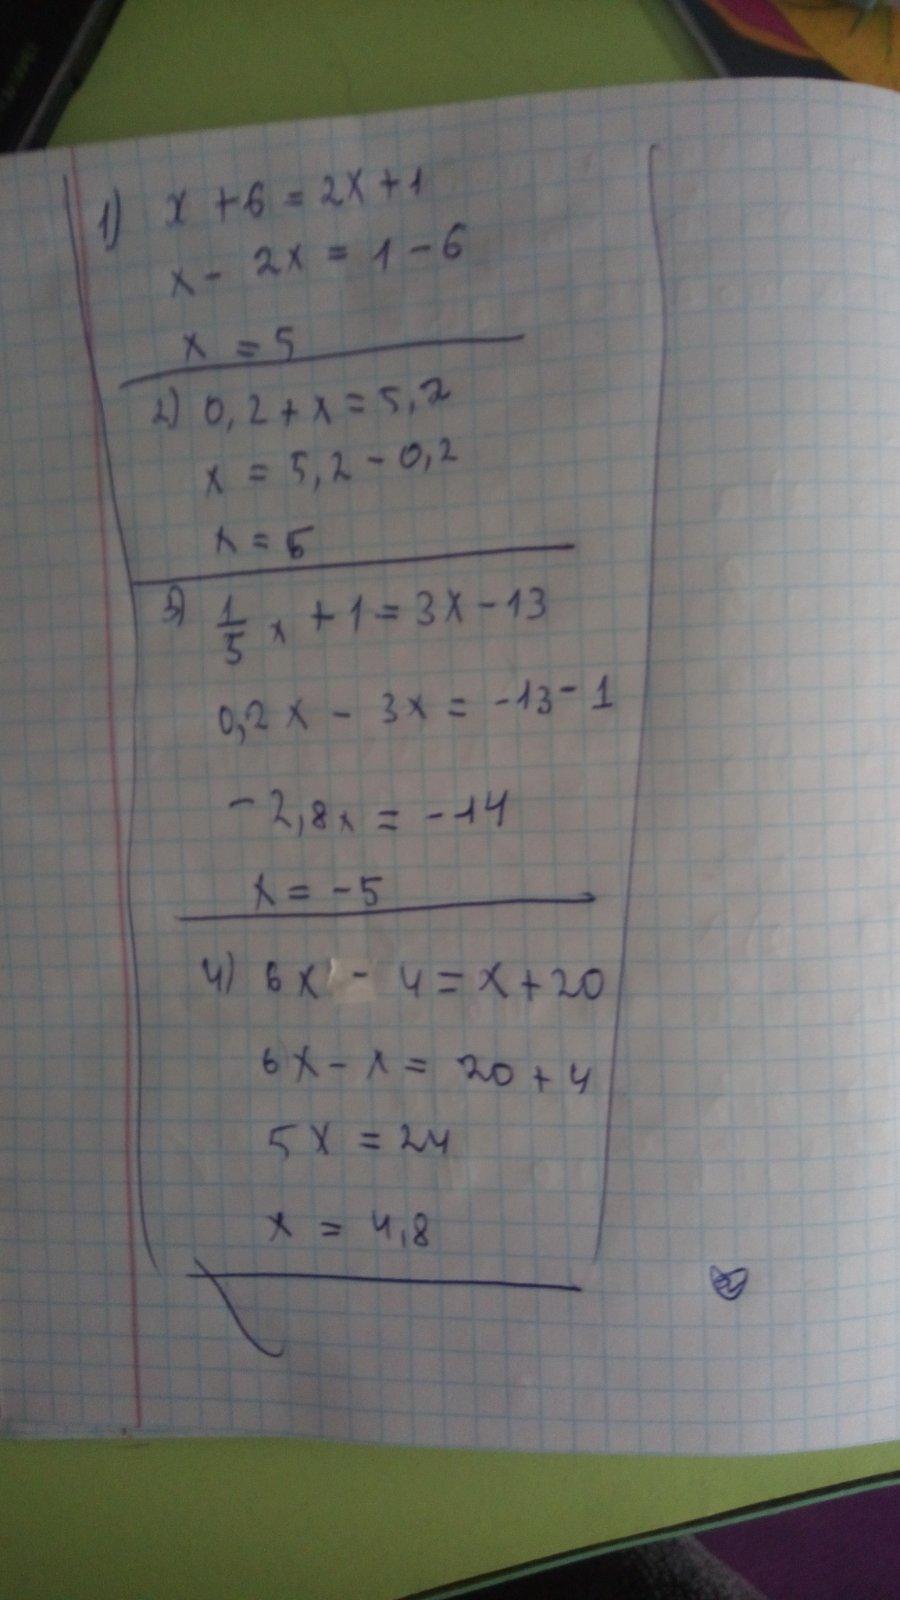 1) x + 6 = 2x + 1
x - 2x = 1 - 6
x = 5
2) 0,2 + x = 5,2
x = 5,2 - 0,2
x = 5
3) 1/5 x + 1 = 3x - 13
0,2x - 3x = -13 - 1
-2,8x = -14
x = -5
4) 6x - 4 = x + 20
6x - x = 20 + 4
5x = 24
x = 4,8